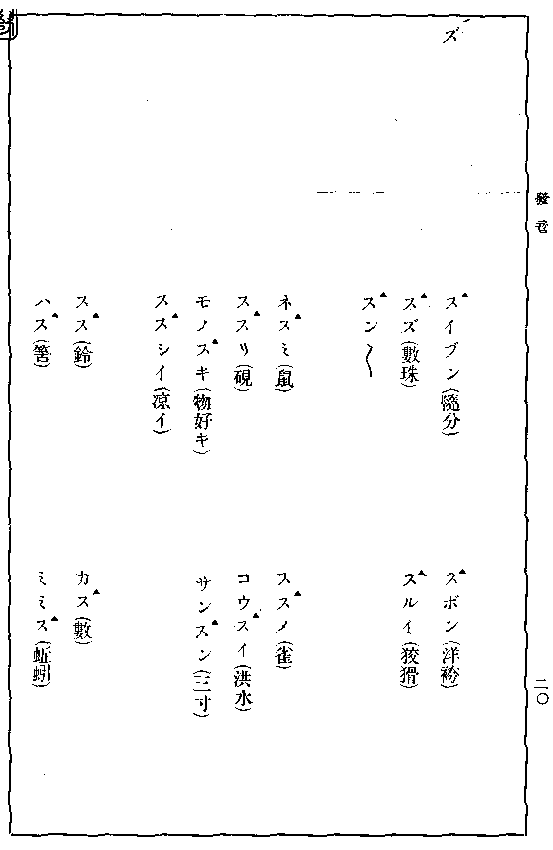 發音
二〇
ズ
スイブン(隨分)
スボン(洋袴)
スズ(數珠)
スルイ(狡猾)
スン〱
ネスミ(鼠)
ススメ(雀)
ススリ(硯)
コウスイ(洪水)
モノスキ(物好キ)
サンスン(三寸)
ススシイ(涼イ)
スス(鈴)
カス(數)
ハス(筈)
ミミス(蚯蚓)